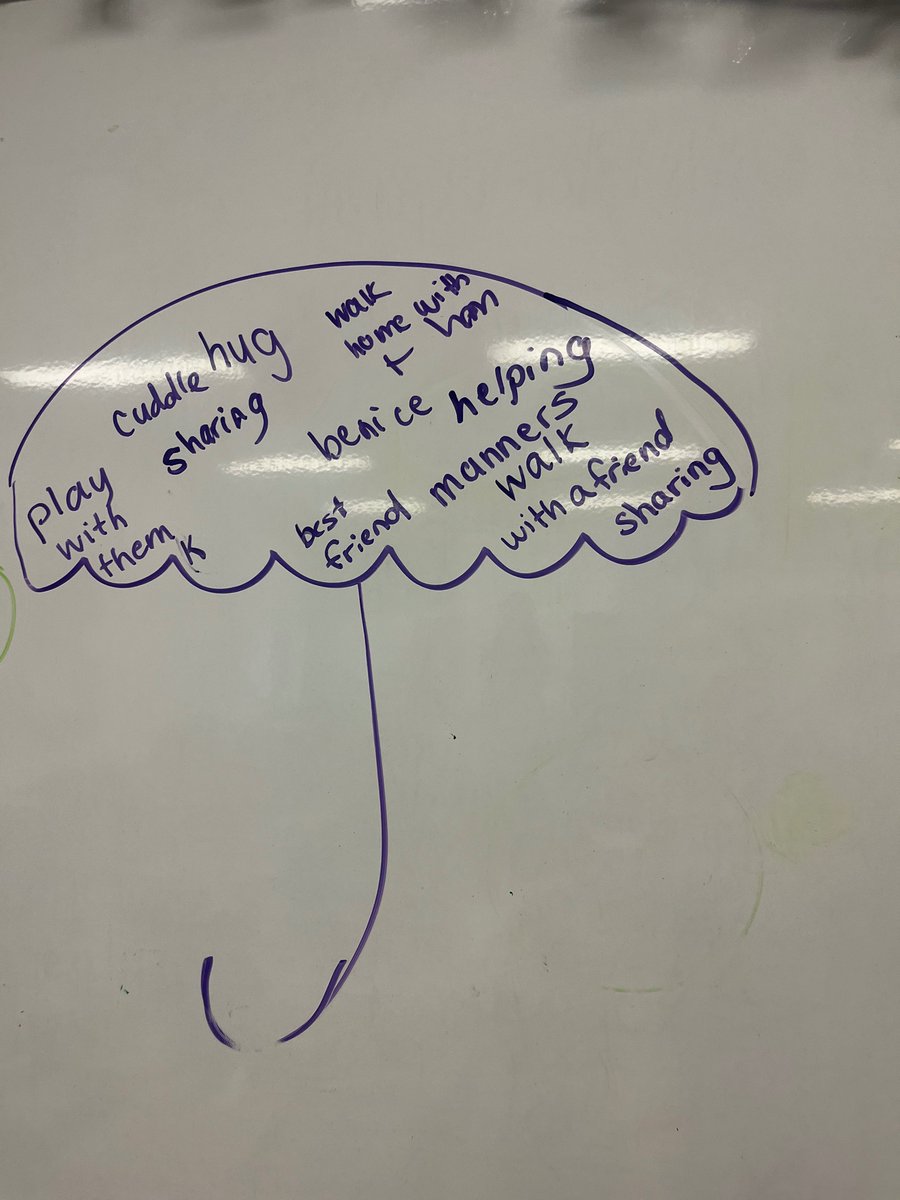 hug
cuddle
sharing
walk
home with
benice
helping
manners
walk
with a friend
sharing
play
with
them
K
best
friend